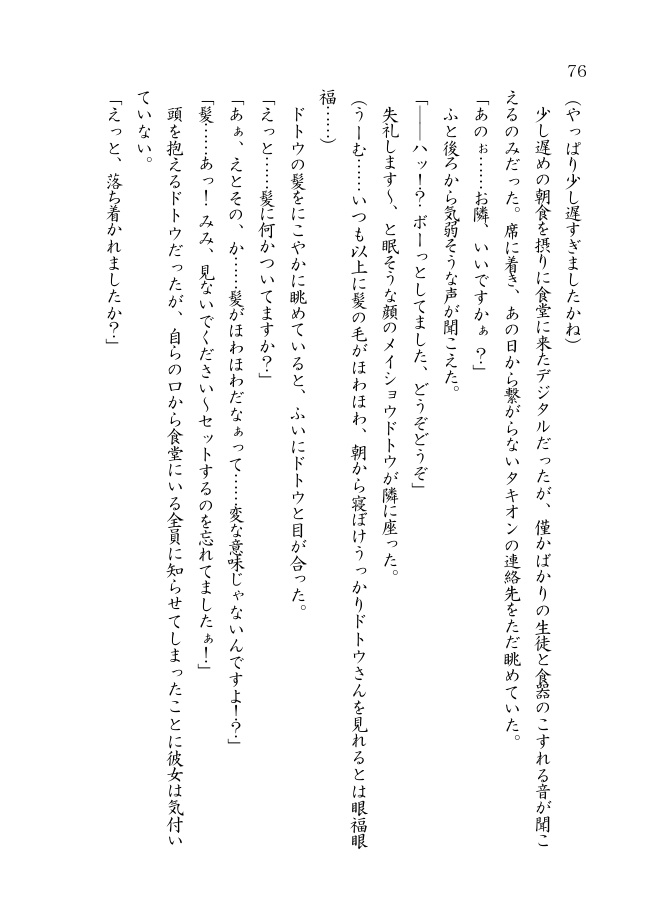 76
（やっぱり少し遅すぎましたかね）
　少し遅めの朝食を摂りに食堂に来たデジタルだったが、僅かばかりの生徒と食器のこすれる音が聞こ
えるのみだった。席に着き、あの日から繋がらないタキオンの連絡先をただ眺めていた。
「あのぉ……お隣、いいですかぁ？」
　ふと後ろから気弱そうな声が聞こえた。
「――ハッ！？ ボーっとしてました、どうぞどうぞ」
　失礼します〜、と眠そうな顔のメイショウドトウが隣に座った。
（うーむ……いつも以上に髪の毛がほわほわ、朝から寝ぼけうっかりドトウさんを見れるとは眼福眼
福……）
　ドトウの髪をにこやかに眺めていると、ふいにドトウと目が合った。
「えっと……髪に何かついてますか？」
「あぁ、えとその、か……髪がほわほわだなぁって……変な意味じゃないんですよ！？」
「髪……あっ！ みみ、見ないでください〜セットするのを忘れてましたぁ！」
　頭を抱えるドトウだったが、自らの口から食堂にいる全員に知らせてしまったことに彼女は気付い
ていない。
「えっと、落ち着かれましたか？」